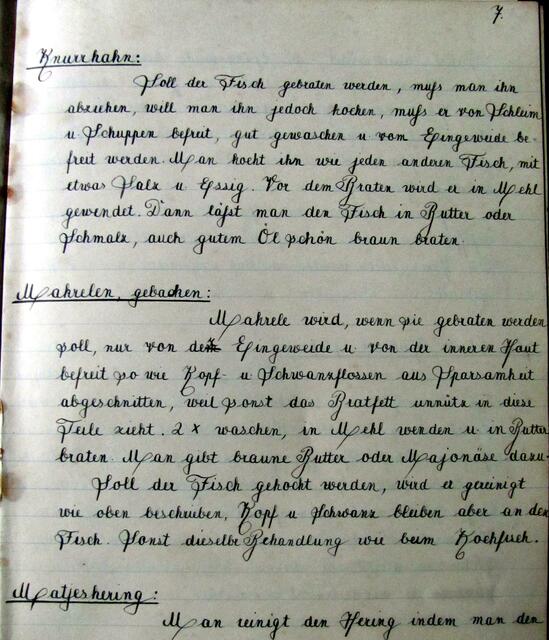 7.
Knurrhahn:
Soll der Fisch gebraten werden, muſs man ihn
abziehen, will man ihn jedoch kochen, muſs er von Schleim
u Schuppen befreit, gut gewaschen u vom Eingeweide be-
freit werden. Man kocht ihn wie jeden anderen Fisch, mit
etwas Salz u Essig. Vor dem Braten wird er in Mehl
gewendet. Dann läſst man den Fisch in Butter oder
Schmalz, auch gutem Öl schön braun braten.
Makrelen, gebacken:
Makrele wird, wenn sie gebraten werden
soll, nur von de Eingeweide u von der inneren Haut
befreit so wie Kopf- u Schwanzflossen aus Sparsamkeit
abgeschnitten, weil sonst das Bratfett unnütz in diese
Teile zieht. 2 x waschen, in Mehl wenden u in Butter
braten. Man gibt braune Butter oder Majonäse dazu-
Soll der Fisch gekocht werden, wird er gereinigt
wie oben beschrieben, Kopf u Schwanz bleiben aber an den
Fisch. Sonst dieselbe Behandlung wie beim Kochfisch.
Matjeshering:
Man reinigt den Hering indem man den